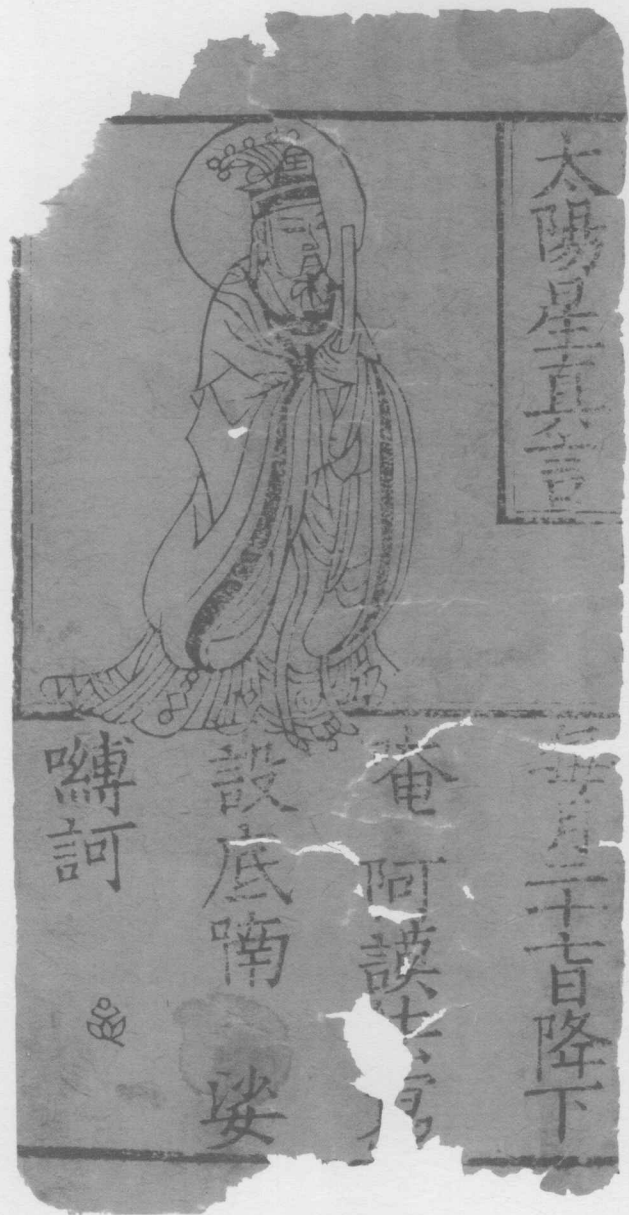 太陽星真言
每月二十七日降下
唵 阿謨佉寫
設底喃 娑
嚩訶